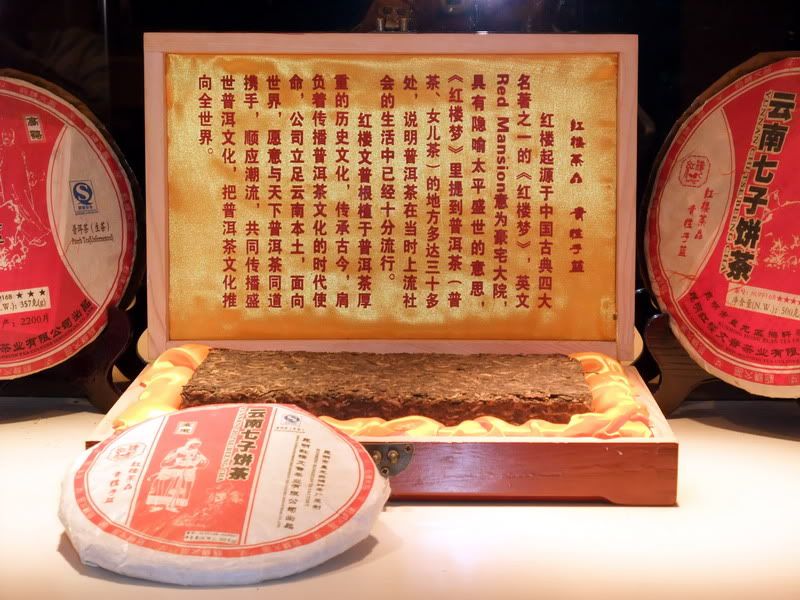 红楼茶品 青胜于蓝
红楼起源于中国古典四大
名著之一的《红楼梦》，英文
Red Mansion意为豪宅大院，
具有隐喻太平盛世的意思，
《红楼梦》里提到普洱茶（普
茶、女儿茶）的地方多达三十多
处，说明普洱茶在当时上流社
会的生活中已经十分流行。
红楼文普根植于普洱茶厚
重的历史文化，传承古今，肩
负着传播普洱茶文化的时代使
命，公司立足云南本土，面向
世界，愿意与天下普洱茶同道
携手，顺应潮流，共同传播盛
世普洱文化，把普洱茶文化推
向全世界。
普洱茶（生茶）
357克(g)
产：2200片
茶业有限公司出品
云南七子饼茶
红楼茶品 青胜于蓝
净含量(N.W.): 500克
云南七子饼茶
红楼茶品 青胜于蓝
昆明红楼文普茶业有限公司出品